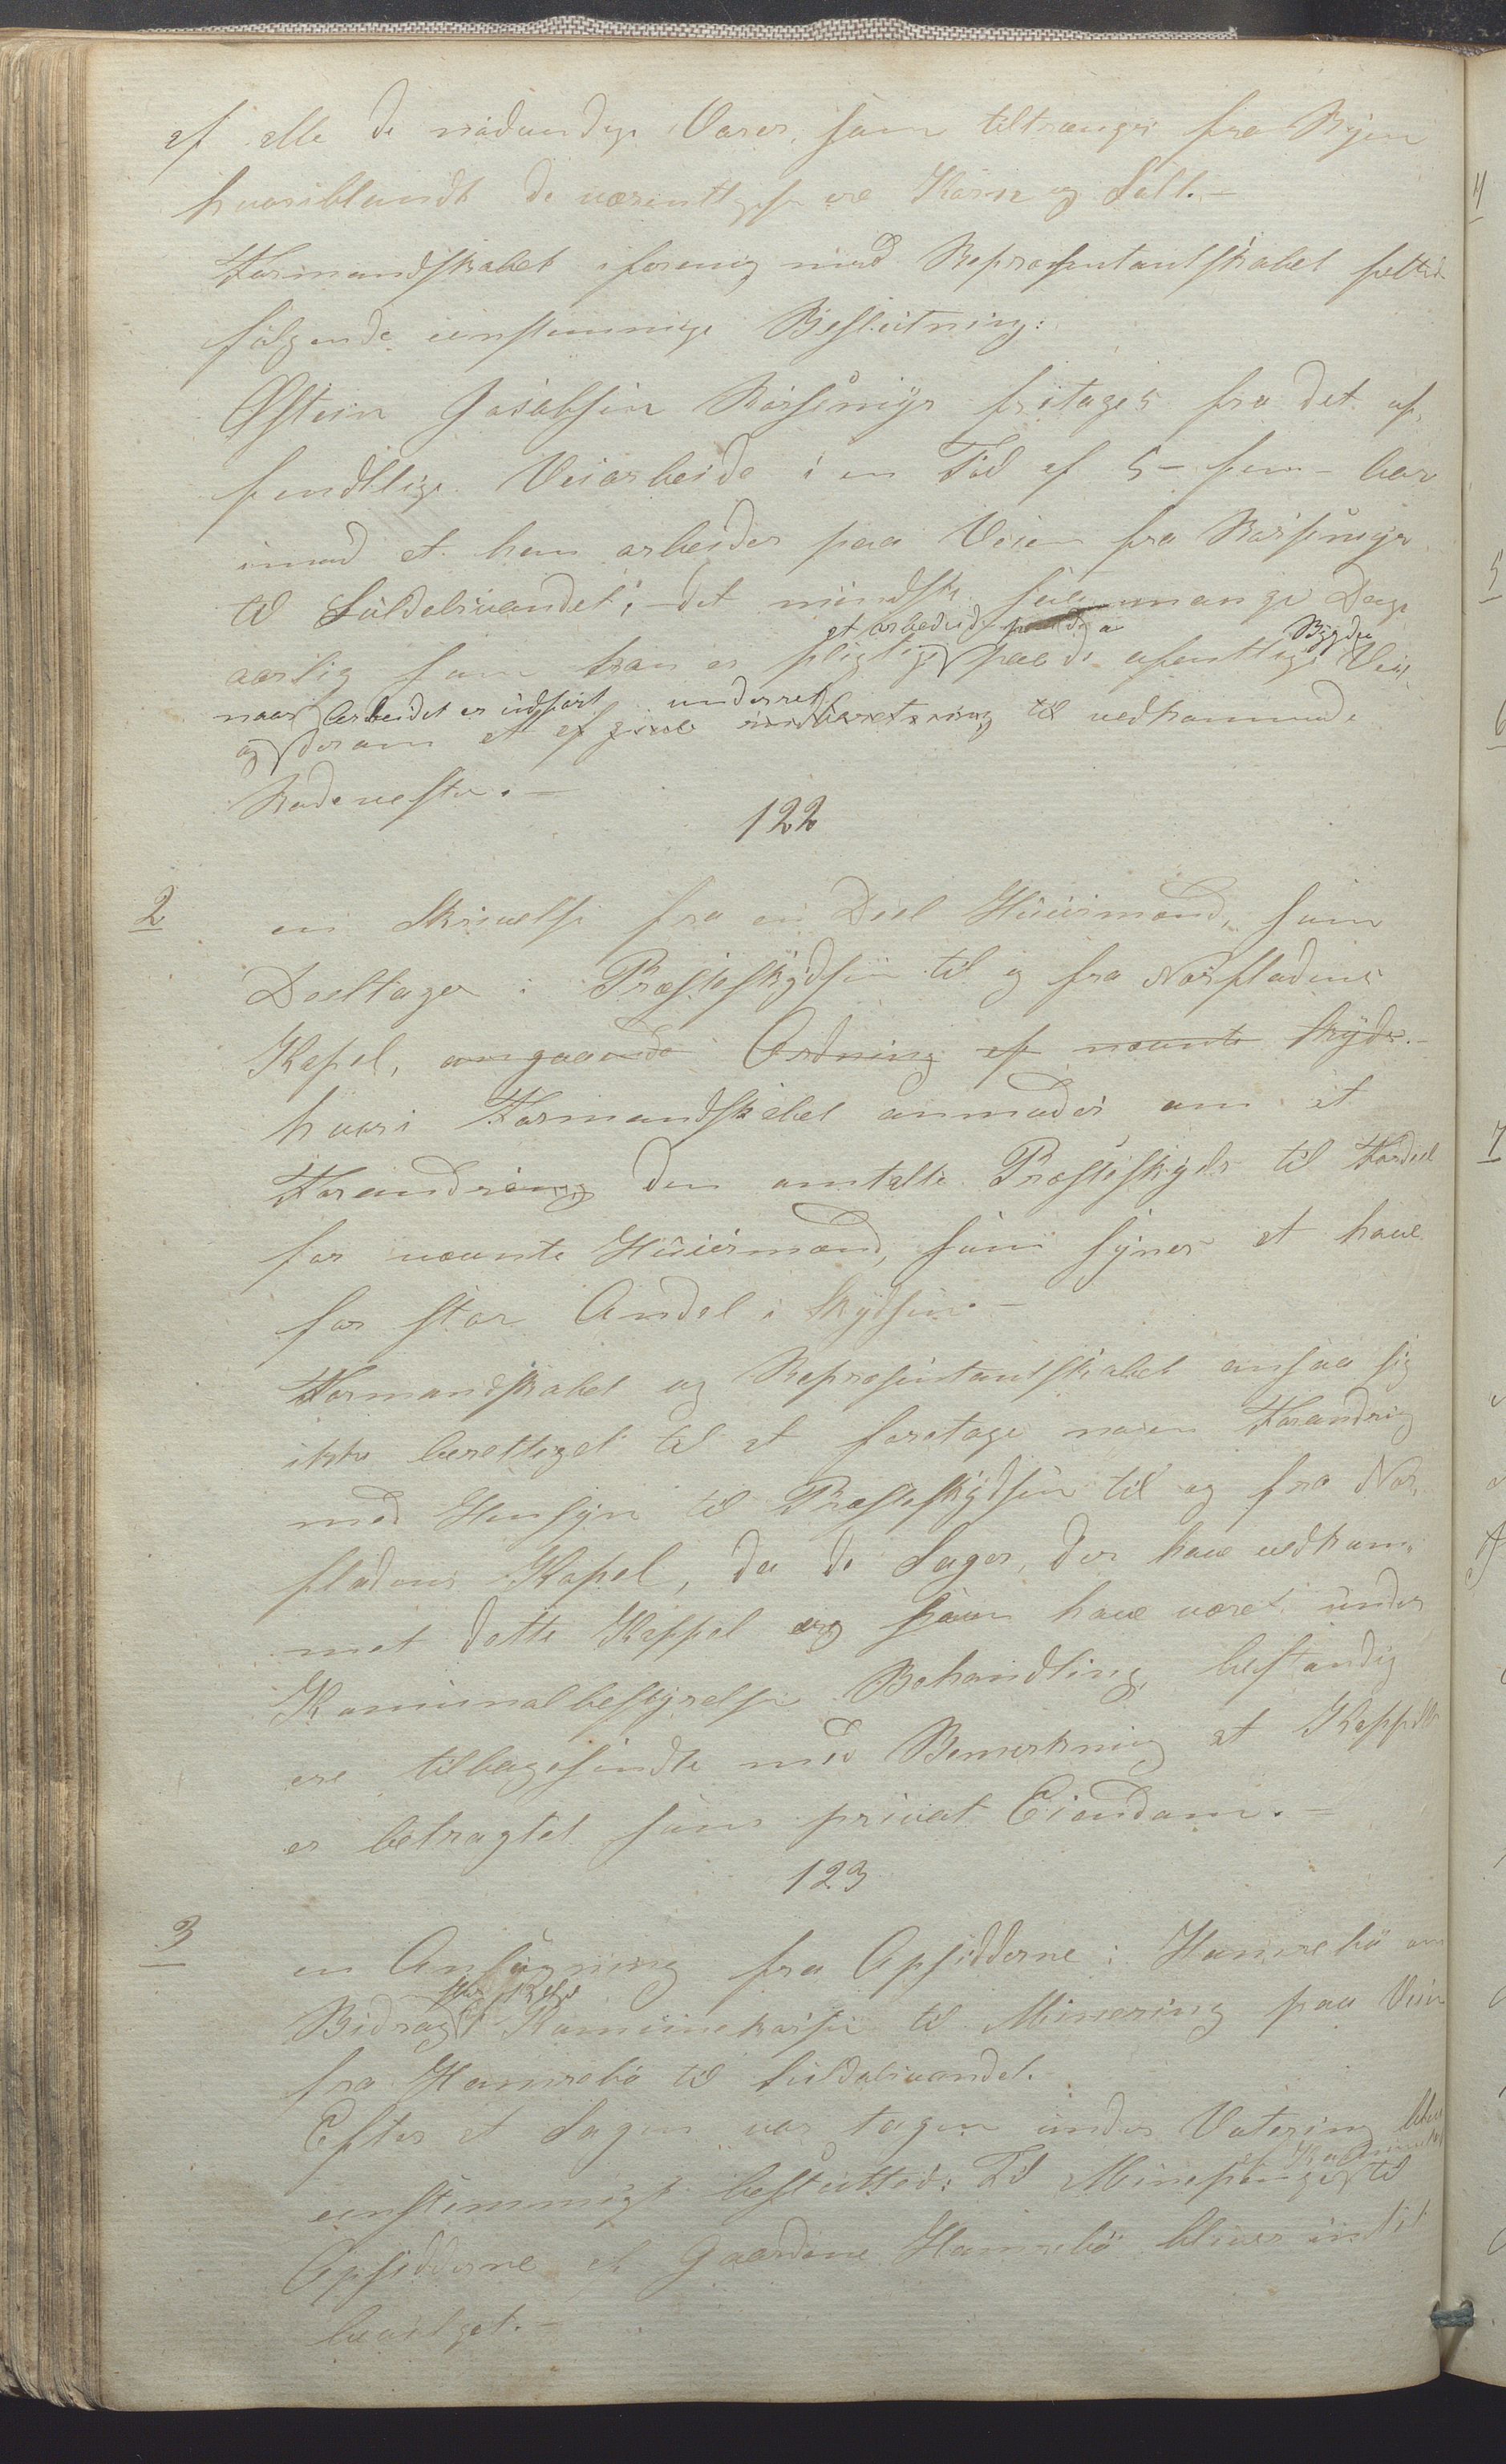 af alle de nødvendige Varer, som tiltrænges fra Byen
hvoriblandt de væsentligste ere Korn og Salt.-
Formandskabet i forening med Representantskabet fattede
følgende eenstemmige Beslutning:
Østein Jacobsen fritages fra det of-
fendtlige Veiarbeide i en Tid af 5 - fem - Aar
imod at han arbeider paa Veien fra
til Suldalsvandet i det mindste saa mange Dage
at arbeide paa Bygde
aarlig som han er pligtig paa de ofentlige Vei,
naar Arbeidet er udført underret
og derom at af give indberetning til vedkommende
Rodemester.-
122
2
en Skrivelse fra en Deel Huusmænd, som
Deeltager i Præsteskydsen til og fra Norstadens
Kapel, angaaende Ordning af nævnte Skyds.-
hvori Formandskabet anmodes om at
Forandring den omtalte Præsteskyds til Fordeel
for nævnte Huusmænd, som synes at have
for stor Andel i Skydsen.-
Formandskabet og Representantskabet ansaa sig
ikke berettiget til at foretage nogen Forandring
med Hensyn til Præsteskydsen til og fra Nor-
stadens Kapel, da de Sager, der have vedkom-
met dette Kappel og som have været under
Komunalbestyrelsens Behandling, bestandig
ere tilbagesendte med Bemerkning at Kappellet
er betragtet som privat Eiendom.-
123
3
en Ansøgning fra Opsidderne i Hamrebø om
Bidrag af Komunekassen til Minering paa Veien
fra Hamrebø til Suldalsvandet.
Efter at Sagen var tagen under Votering blev
eenstemmigt beslutted: Til Minepenge til
Opsidderne af Gaardene Hamrebø bliver intet
bevilget.-